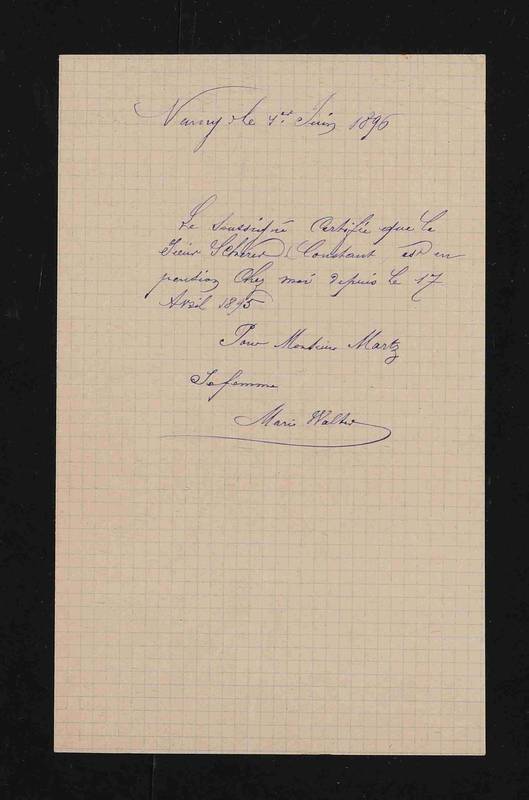 le 1er Juin 1896
Le soussigné Certifie que le
Sieur Scherer Constant est en
pension Chez moi depuis le 17
Avril 1895
Pour Monsieur Martz
Sa femme
Marie Walter